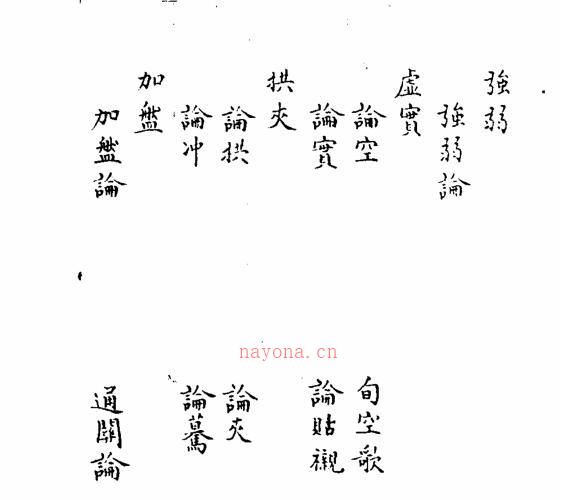 強弱
強弱論
虛實
論空 旬空歌
論實 論貼襯
拱夾
論拱 論夾
論冲 論驀
加盤
加盤論 通關論
nayona.cn